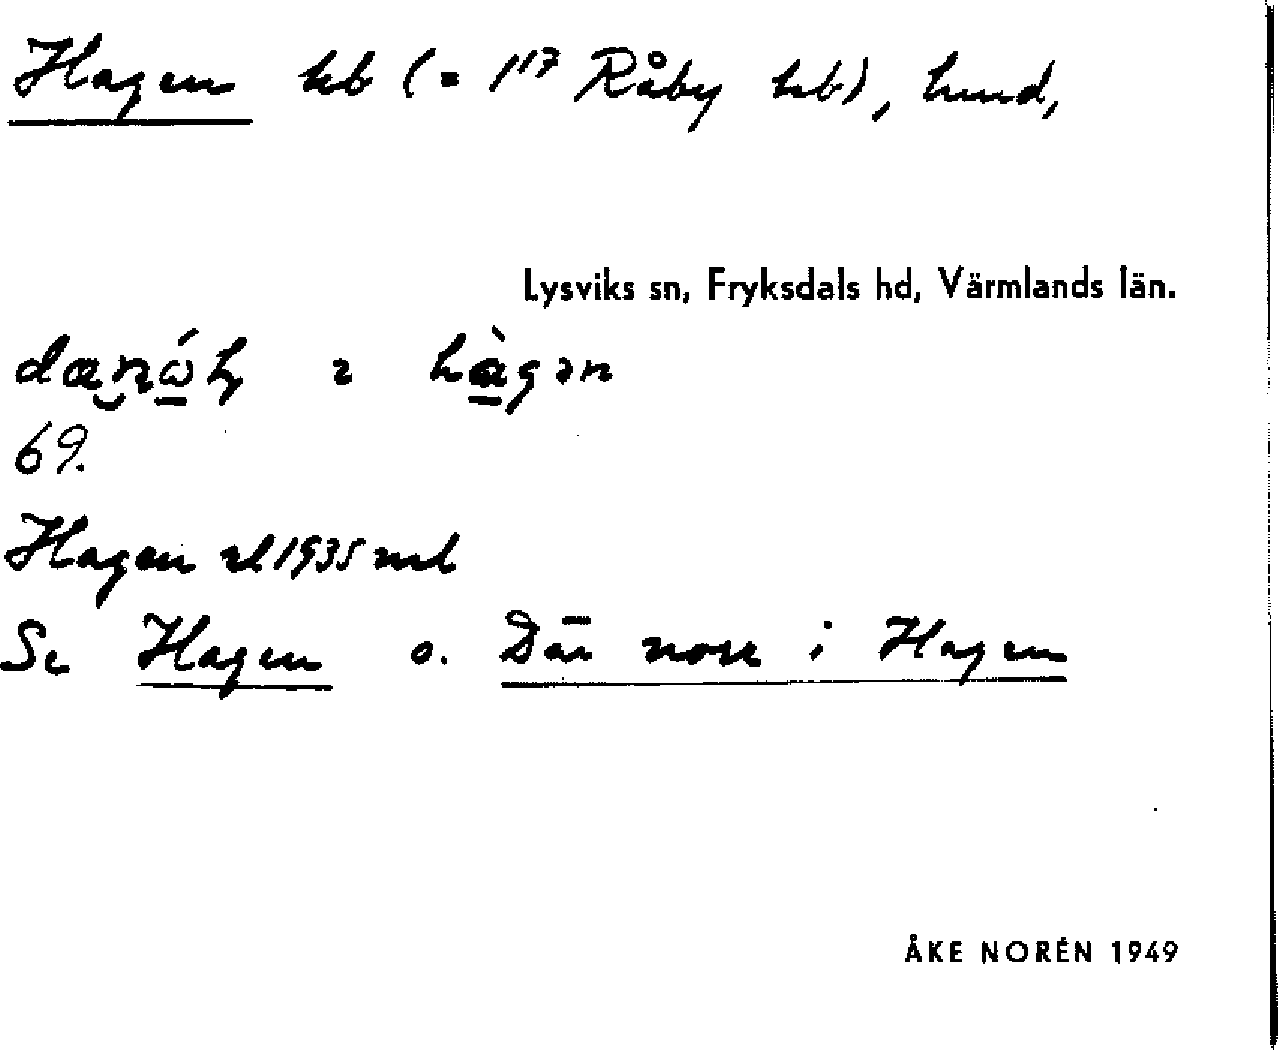 Hagen hb (= 1¹⁷ Råby hb), hmd,
Lysviks sn, Fryksdals hd, Värmlands län.
hàgən
69.
Hagen rl 1935 md
Se Hagen o. Där norr i Hagen
ÅKE NORÉN 1949